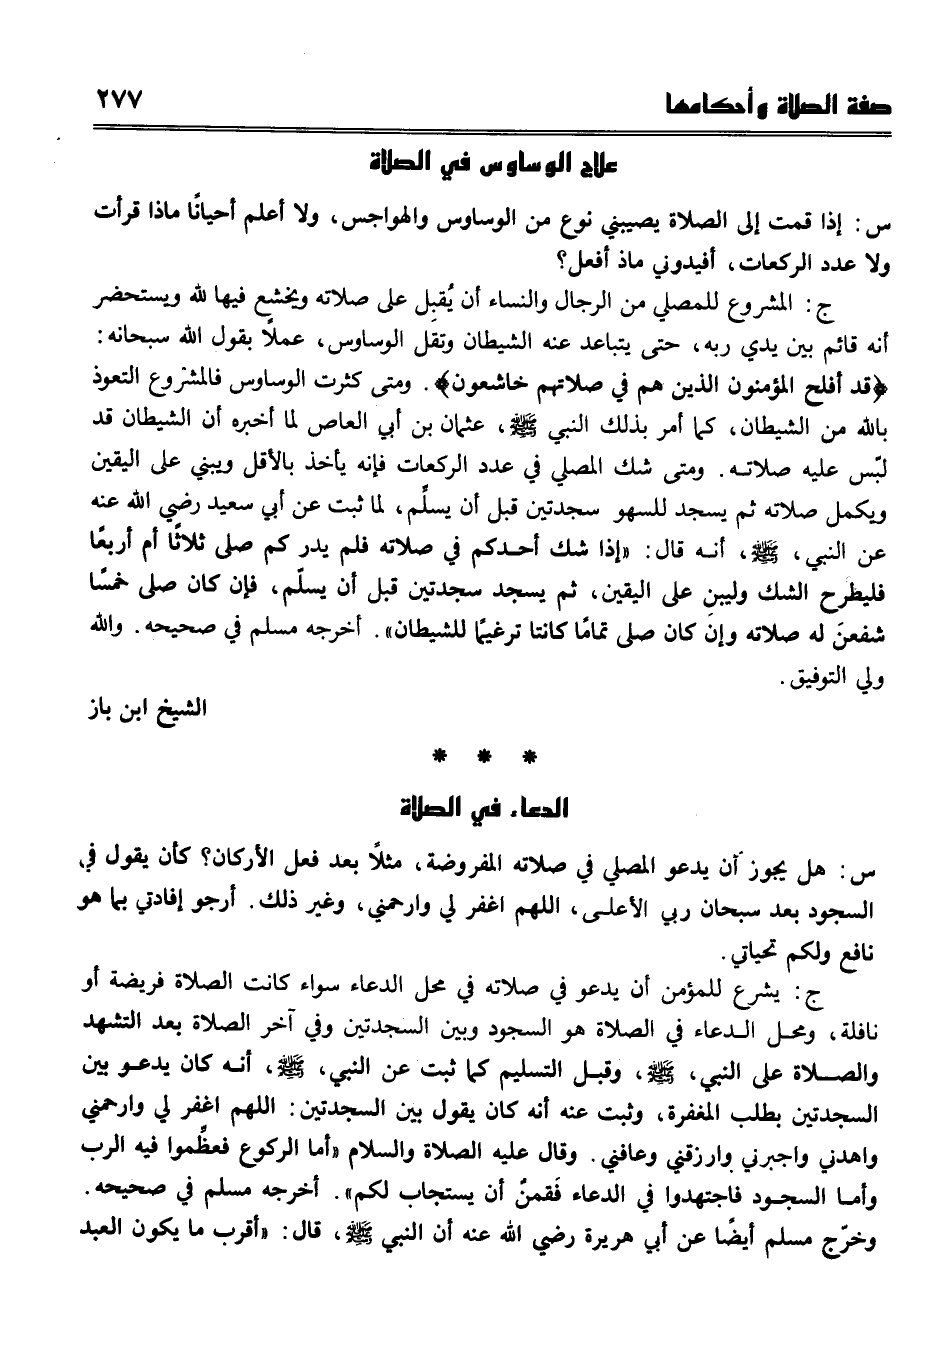 صفة الصلاة وأحكامها ٢٧٧
علاج الوساوس في الصلاة
س: إذا قمت إلى الصلاة يصيبني نوع من الوساوس والهواجس، ولا أعلم أحيانًا ماذا قرأت
ولا عدد الركعات، أفيدوني ماذ أفعل؟
ج: المشروع للمصلي من الرجال والنساء أن يُقبِل على صلاته ويخشع فيها لله ويستحضر
أنه قائم بين يدي ربه، حتى يتباعد عنه الشيطان وتقل الوساوس، عملاً بقول الله سبحانه:
﴿قد أفلح المؤمنون الذين هم في صلاتهم خاشعون﴾. ومتى كثرت الوساوس فالمشروع التعوذ
بالله من الشيطان، كما أمر بذلك النبي ﷺ، عثمان بن أبي العاص لما أخبره أن الشيطان قد
لبّس عليه صلاته. ومتى شك المصلي في عدد الركعات فإنه يأخذ بالأقل ويبني على اليقين
ويكمل صلاته ثم يسجد للسهو سجدتين قبل أن يسلِّم، لما ثبت عن أبي سعيد رضي الله عنه
عن النبي، ﷺ، أنه قال: «إذا شك أحدكم في صلاته فلم يدر كم صلى ثلاثًا أم أربعًا
فليطرح الشك وليبنِ على اليقين، ثم يسجد سجدتين قبل أن يسلّم، فإن كان صلى خمسًا
شفعنَ له صلاته وإن كان صلى تمامًا كانتا ترغيمًا للشيطان». أخرجه مسلم في صحيحه. والله
ولي التوفيق.
الشيخ ابن باز
* * *
الدعاء في الصلاة
س: هل يجوز أن يدعو المصلي في صلاته المفروضة، مثلاً بعد فعل الأركان؟ كأن يقول في
السجود بعد سبحان ربي الأعلى، اللهم اغفر لي وارحمني، وغير ذلك. أرجو إفادتي بما هو
نافع ولكم تحياتي.
ج: يشرع للمؤمن أن يدعو في صلاته في محل الدعاء سواء كانت الصلاة فريضة أو
نافلة، ومحل الدعاء في الصلاة هو السجود وبين السجدتين وفي آخر الصلاة بعد التشهد
والصلاة على النبي، ﷺ، وقبل التسليم كما ثبت عن النبي، ﷺ، أنه كان يدعو بين
السجدتين بطلب المغفرة، وثبت عنه أنه كان يقول بين السجدتين: اللهم اغفر لي وارحمني
واهدني واجبرني وارزقني وعافني. وقال عليه الصلاة والسلام «أما الركوع فعظِّموا فيه الرب
وأما السجود فاجتهدوا في الدعاء فَقمنٌ أن يستجاب لكم». أخرجه مسلم في صحيحه.
وخرّج مسلم أيضًا عن أبي هريرة رضي الله عنه أن النبي ﷺ، قال: «أقرب ما يكون العبد